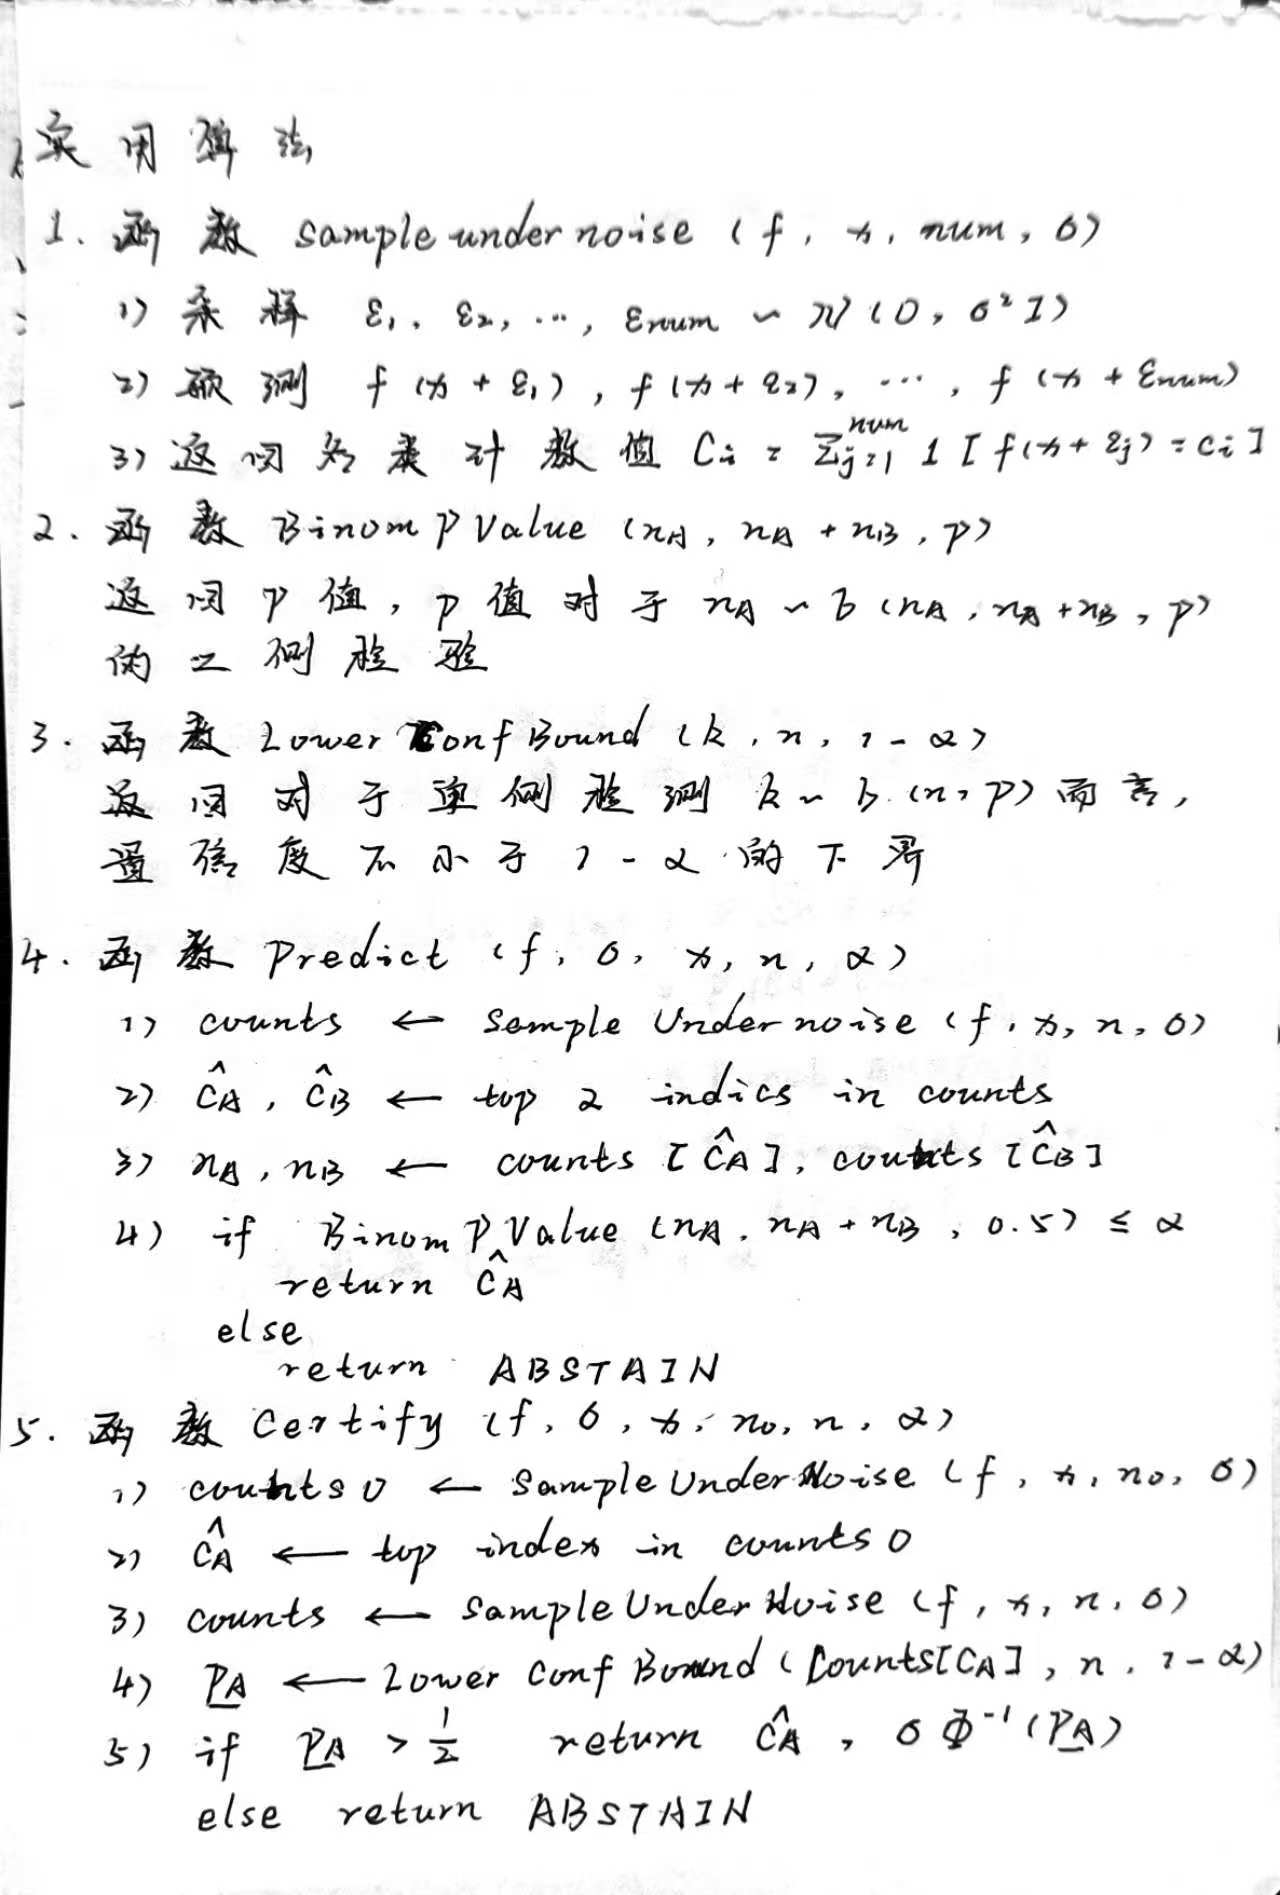 实用算法
1. 函数 sample under noise (f, x, num, σ)
1) 采样 ε₁, ε₂, ..., εnum ~ N(0, σ²I)
2) 预测 f(x + ε₁), f(x + ε₂), ..., f(x + εnum)
3) 返回各类计数值 Ci = Σ_{j=1}^{num} 1[f(x + εj) = ci]
2. 函数 Binom P Value (nA, nA + nB, p)
返回 p 值, p 值对于 nA ~ b(nA, nA + nB, p)
的二侧检验
3. 函数 Lower Conf Bound (k, n, 1 - α)
返回对于单侧检测 k ~ b(n, p) 而言,
置信度不小于 1 - α 的下界
4. 函数 Predict (f, σ, x, n, α)
1) counts ← Sample Under noise (f, x, n, σ)
2) ĉA, ĉB ← top 2 indics in counts
3) nA, nB ← counts [ĉA], counts [ĉB]
4) if Binom P Value (nA, nA + nB, 0.5) ≤ α
return ĉA
else
return ABSTAIN
5. 函数 Certify (f, σ, x, n₀, n, α)
1) counts0 ← Sample Under Noise (f, x, n₀, σ)
2) ĉA ← top index in counts0
3) counts ← Sample Under Noise (f, x, n, σ)
4) p̲A ← Lower Conf Bound (Counts[CA], n, 1 - α)
5) if p̲A > 1/2 return ĉA, σΦ⁻¹(p̲A)
else return ABSTAIN